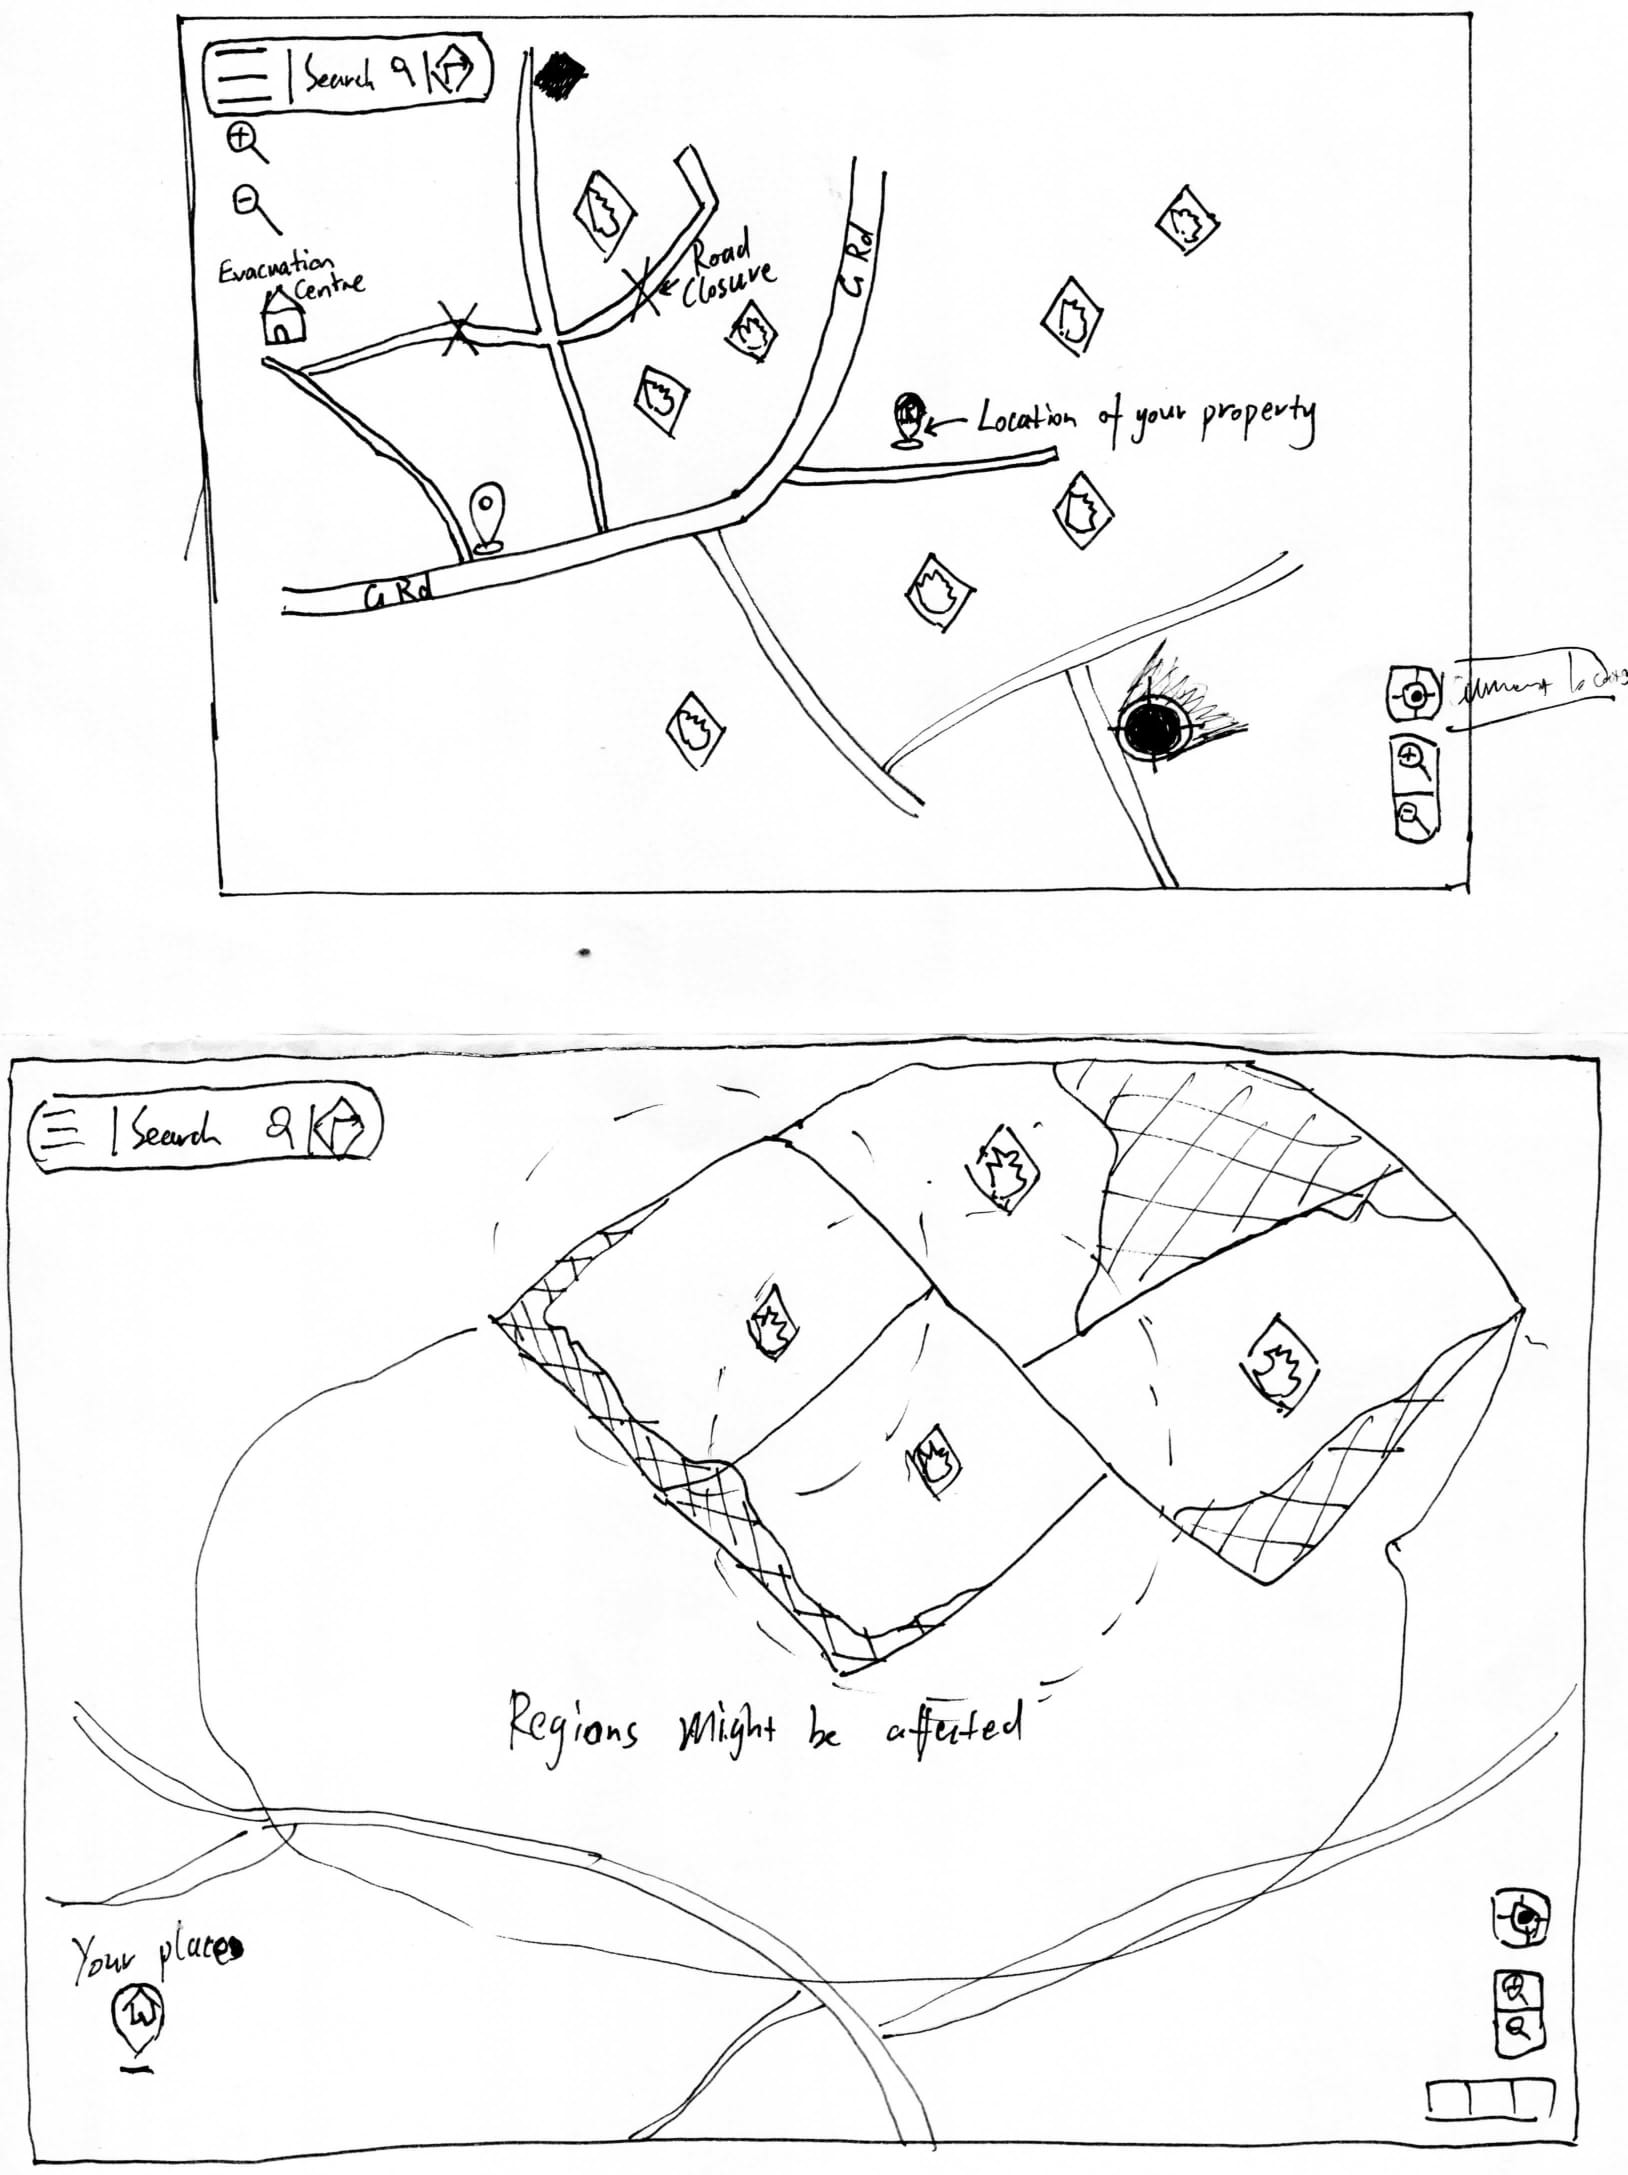 Search
Evacuation
Centre
Road
Closure
G Rd
Location of your property
G Rd
Search
Regions Might be affected
Your places